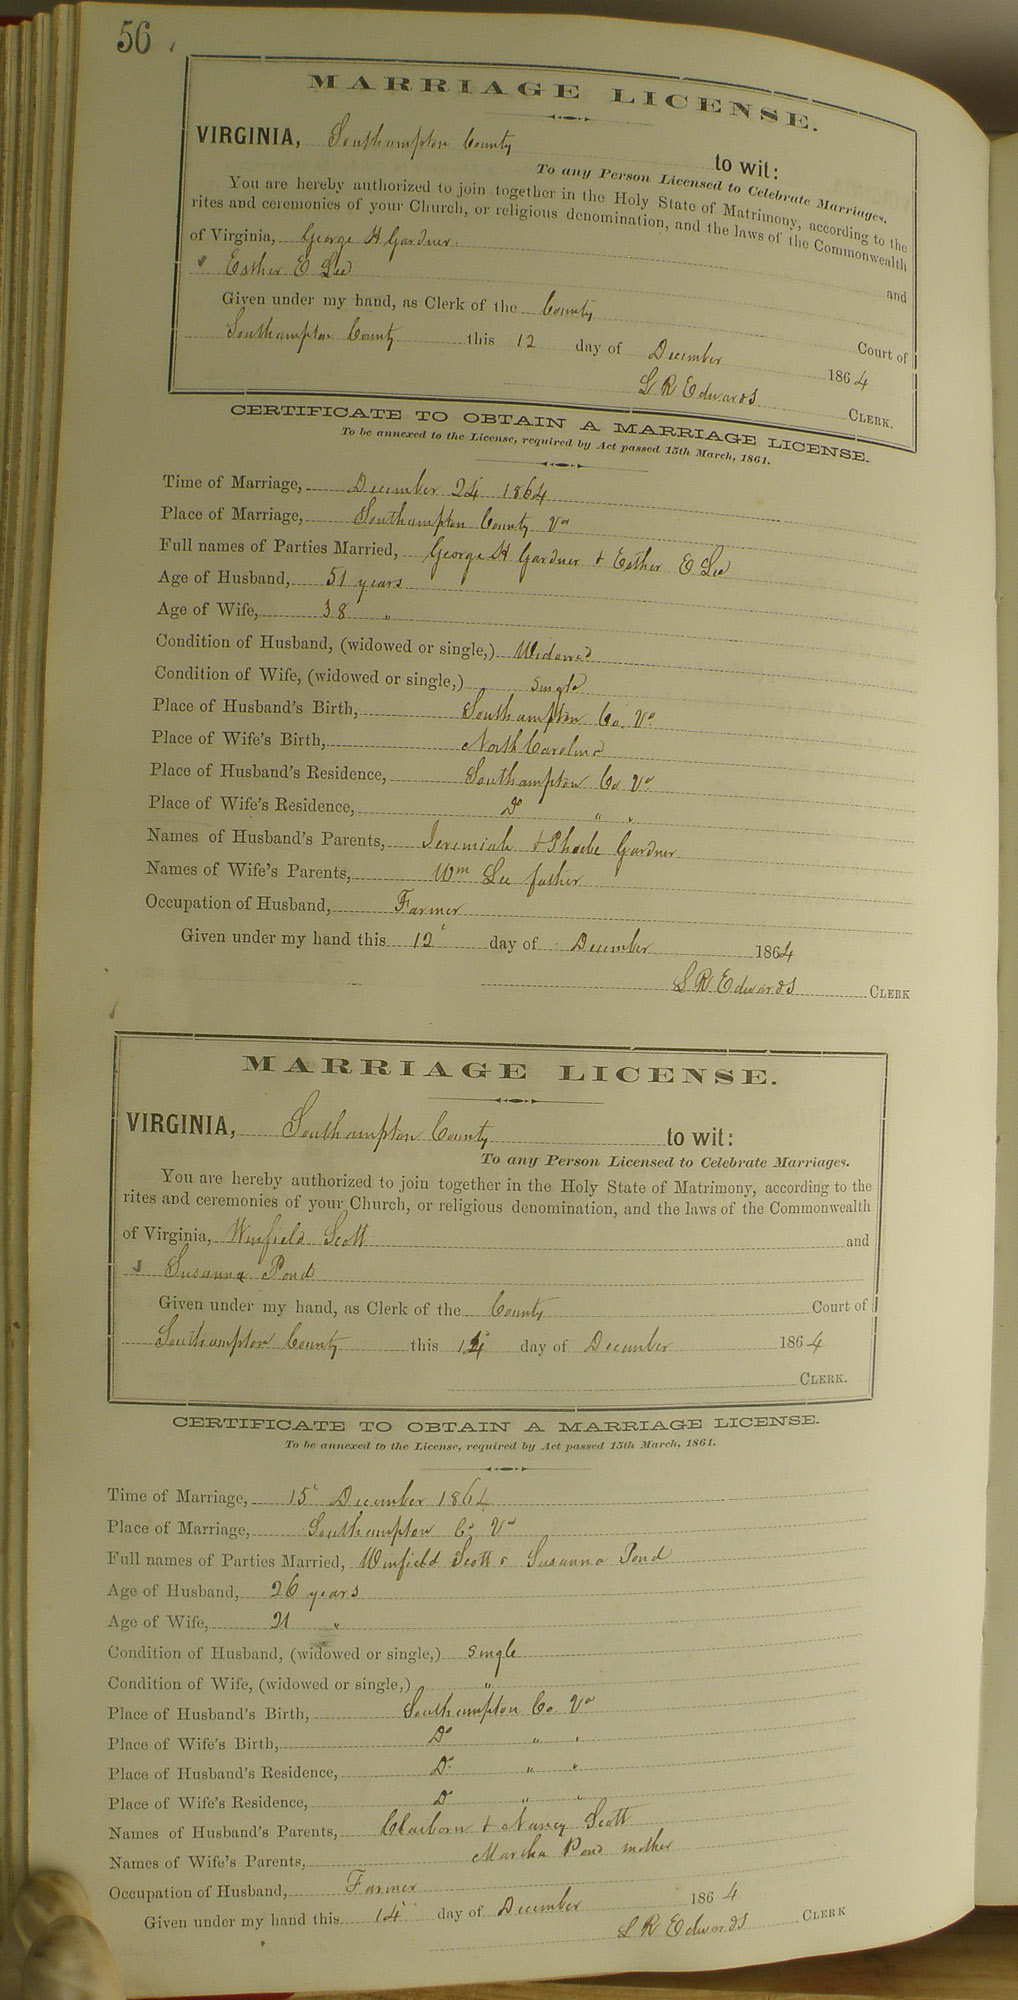 56
MARRIAGE LICENSE.
VIRGINIA, Southampton County to wit:
To any Person Licensed to Celebrate Marriages.
You are hereby authorized to join together in the Holy State of Matrimony, according to the
rites and ceremonies of your Church, or religious denomination, and the laws of the Commonwealth
of Virginia, George H Gardner and
Esther E Lee
Given under my hand, as Clerk of the County Court of
Southampton County this 12 day of December 1864
L R Edwards CLERK.
CERTIFICATE TO OBTAIN A MARRIAGE LICENSE.
To be annexed to the License, required by Act passed 15th March, 1861.
Time of Marriage, December 24 1864
Place of Marriage, Southampton County Va
Full names of Parties Married, George H Gardner & Esther E Lee
Age of Husband, 51 years
Age of Wife, 38 "
Condition of Husband, (widowed or single,) Widowed
Condition of Wife, (widowed or single,) Single
Place of Husband's Birth, Southampton Co. Va
Place of Wife's Birth, North Carolina
Place of Husband's Residence, Southampton Co Va
Place of Wife's Residence, Do " "
Names of Husband's Parents, Jeremiah & Phoebe Gardner
Names of Wife's Parents, Wm Lee father
Occupation of Husband, Farmer
Given under my hand this 12 day of December 1864
L R Edwards CLERK
MARRIAGE LICENSE.
VIRGINIA, Southampton County to wit:
To any Person Licensed to Celebrate Marriages.
You are hereby authorized to join together in the Holy State of Matrimony, according to the
rites and ceremonies of your Church, or religious denomination, and the laws of the Commonwealth
of Virginia, Winfield Scott and
Susanna Pond
Given under my hand, as Clerk of the County Court of
Southampton County this 14 day of December 1864
CLERK.
CERTIFICATE TO OBTAIN A MARRIAGE LICENSE.
To be annexed to the License, required by Act passed 15th March, 1861.
Time of Marriage, 15 December 1864
Place of Marriage, Southampton Co Va
Full names of Parties Married, Winfield Scott & Susanna Pond
Age of Husband, 26 years
Age of Wife, 21 "
Condition of Husband, (widowed or single,) Single
Condition of Wife, (widowed or single,) "
Place of Husband's Birth, Southampton Co. Va
Place of Wife's Birth, Do " "
Place of Husband's Residence, Do " "
Place of Wife's Residence, Do " "
Names of Husband's Parents, Claiborn & Nancy Scott
Names of Wife's Parents, Martha Pond mother
Occupation of Husband, Farmer
Given under my hand this 14 day of December 1864
L R Edwards CLERK